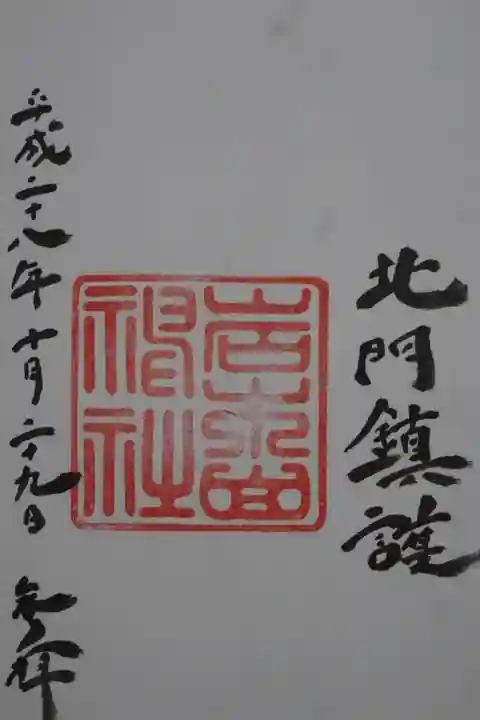 北門鎮護
岩木山
神社
平成二十八年十月二十九日 参拝